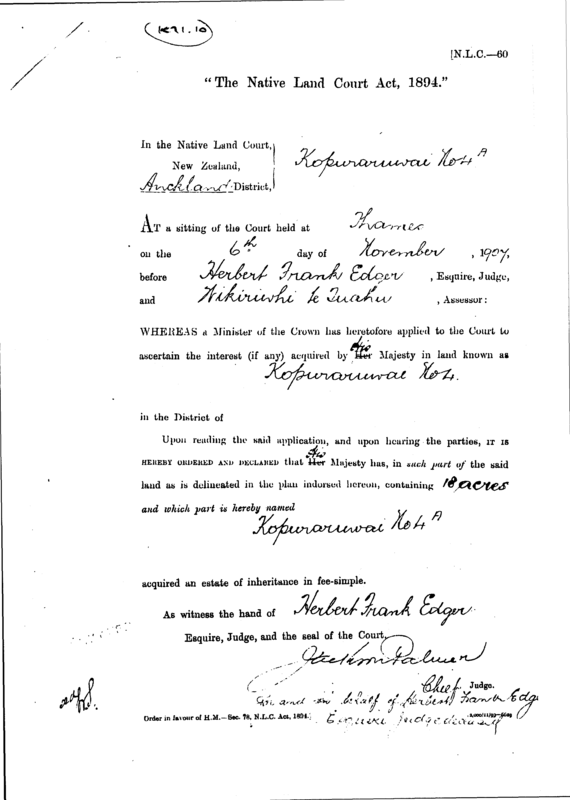 K21.10
[N.L.C.—60
"The Native Land Court Act, 1894."
In the Native Land Court,
New Zealand,
Auckland District,
Kopuraruwai No 4 A
AT a sitting of the Court held at Thames
on the 6th day of November, 1907,
before Herbert Frank Edger, Esquire, Judge,
and Wikiriwhi te Tuahu, Assessor:
WHEREAS a Minister of the Crown has heretofore applied to the Court to
His
ascertain the interest (if any) acquired by Her Majesty in land known as
Kopuraruwai No 4.
in the District of
Upon reading the said application, and upon hearing the parties, IT IS
His
HEREBY ORDERED AND DECLARED that Her Majesty has, in such part of the said
land as is delineated in the plan indorsed hereon, containing 18 acres
and which part is hereby named
Kopuraruwai No 4 A
acquired an estate of inheritance in fee-simple.
As witness the hand of Herbert Frank Edger
Esquire, Judge, and the seal of the Court,
Jackson Palmer
Chief Judge.
for and on behalf of Herbert Frank Edg
Order in favour of H.M.—Sec. 78, N.L.C. Act, 1894.
Esquire Judge deceased